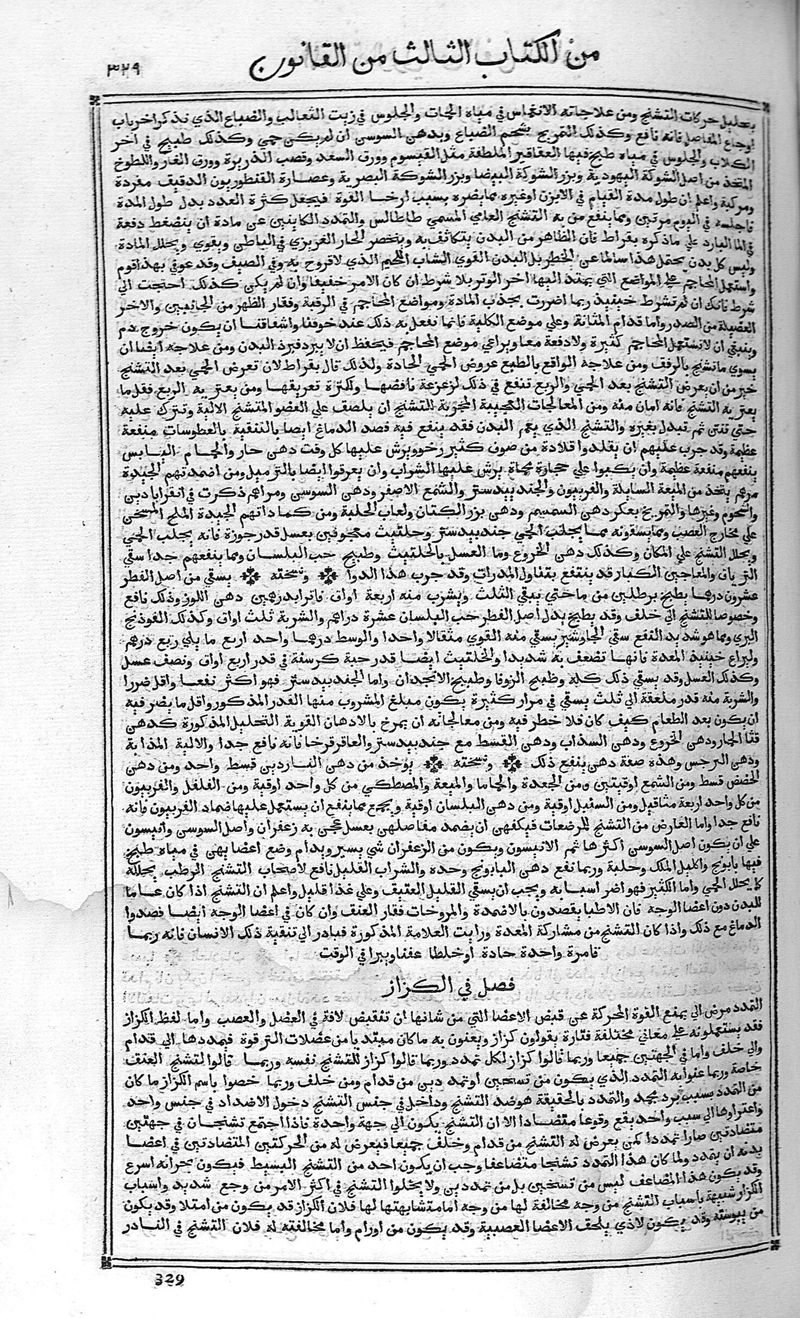 من الكتاب الثالث من القانون ٣٢٩
بتحليل حركات التشنج ومن علاجاته الانغماس في مياه الحمات والجلوس في زيت الثعالب والضباع الذي نذكر اخر باب
اوجاع المفاصل فانه نافع وكذلك التمريخ بشحم الضباع وبدهن السوسن ان لم يكن حمي وكذلك طبيخ في اخر
الكلاب والجلوس في مياه طبخ فيها العقاقير الملطفة مثل القيسوم وورق السعد وقصب الذريرة وورق الغار واللطوخ
المتخذ من اصل الشوكة اليهودية وبزر الشوكة البيضا وبزر الشوكة البصرية وعصارة القنطوريون الدقيق مفردة
ومركبة واعلم ان طول مدة القيام في الابزن اوغيره مما يضره بسبب ارخا القوة فيجعل كثرة العدد بدل طول المدة
فاجلسه في اليوم مرتين ومما ينفع من به التشنج العامي المسمي طاطالس والتمدد الكاينين عن مادة ان ينضغط دفعة
في الما البارد علي ما ذكره بقراط فان الظاهر من البدن يتكاثف به وينحصر الحار الغريزي في الباطن ويقوي ويحلل المادة
وليس كل بدن يحتمل هذا سالما عن الخطر بل البدن القوي الشاب اللحيم الذي لا قروح به وفي الصيف وقد عوفي بهذا قوم
واستعمل المحاجم علي المواضع التي يمتد اليها اخر الوتر بلا شرط ان كان الامر خفيفا وان لم يكن كذلك احتجت الي
شرط فانك ان لم تشرط حينيذ ربما اضررت بجذب المادة ومواضع المحاجم في الرقبة وفقار الظهر من الجانبين والاخر
العضلية من الصدر واما قدام المثانة وعلي موضع الكلية فانما نفعل به ذلك عند خوفنا واشفاقنا ان يكون خروج دم
وينبغي ان لا تستعمل المحاجم كثيرة ولا دفعة معا ويراعي موضع المحاجم فيحفظ ان لا يبرد فيبرد البدن ومن علاجه ايضا ان
يسوي ما تشنج بالرفق ومن علاجه الواقع بالطبع عروض الحمي الحادة ولذلك قال بقراط لان تعرض الحمي بعد التشنج
خير من ان يعرض التشنج بعد الحمي والربع تنفع في ذلك لزعزعة نافضها ولكثرة تعريقها ومن يعتريه الربع فقل ما
يعتريه التشنج فانه امان منه ومن المعالجات العجيبة المجربة للتشنج ان يلصق علي العضو المتشنج الالية وتترك عليه
حتي تنتن ثم تبدل بغيره والتشنج الذي يعم البدن فقد ينفع فيه قصد الدماغ ايضا بالتنقية بالعطوسات منفعة
عظيمة وقد جرب عليهم ان يقلدوا قلادة من صوف كثير رخو ويرش عليها كل وقت دهن حار والحمام اليابس
ينفعهم منفعة عظيمة وان يكبوا علي حجارة محماة يرش عليها الشراب وان يعرقوا ايضا بالتزميل ومن اضمدتهم الجيدة
مرهم يتخذ من الميعة السايلة والفربيون والجندبيدستر والشمع الاصفر ودهن السوسن ومراهم ذكرت في اقرابادين
والشحوم وغيرها والتمريخ بعكر دهن السمسم ودهن بزر الكتان ولعاب الحلبة ومن كماداتهم الجيدة الملح المسخن
علي مخارج العصب ومما يسقونه مما يجلب الحمي جندبيدستر وحلتيت معجونين بعسل قدر جوزة فانه يجلب الحمي
ويحلل التشنج علي المكان وكذلك دهن الخروع وما العسل بالحلتيت وطبيخ حب البلسان ومما ينفعهم جدا سقي
الترياق والمعاجين الكبار قد ينتفع بتناول المدرات وقد جرب هذا الدوا ونسخته يسقي من اصل الفطر
عشرون درهما يطبخ برطلين من ما حتي يبقي الثلث ويشرب منه اربعة اواق فاترا بدرهمين دهن اللوز وذلك نافع
وخصوصا للتشنج الي خلف وقد يطبخ بدل اصل الفطر حب البلسان عشرة دراهم والشربة ثلث اواق وكذلك الفوذنج
البري ومما هو شديد النفع سقي الجاوشير يسقي منه القوي مثقالا واحدا والوسط درهما واحد اربع ما يلي ربع درهم
وليراع حينيذ المعدة فانها تضعف به شديدا والحلتيت ايضا قدر حبة كرسنة في قدر اربع اواق ونصف عسل
وكذلك العسل وقد يسقي ذلك كله وطبيخ الزوفا وطبيخ الانجدان واما الجندبيدستر فهو اكثر نفعا واقل ضررا
والشربة منه قدر ملعقة الي ثلث يسقي في مرار كثيرة يكون مبلغ المشروب منها القدر المذكور واقل ما يضر فيه
ان يكون بعد الطعام كيف كان فلا خطر فيه ومن معالجاته ان يمرخ بالادهان القوية التحليل المذكورة كدهن
قثا الحمار ودهن الخروع ودهن السذاب ودهن القسط مع جندبيدستر والعاقرقرحا فانه نافع جدا والالية المذابة
ودهن النرجس وهذه صفة دهن ينفع ذلك ونسخته يوخذ من دهن الناردين قسط واحد ومن دهن
الحضض قسط ومن الشمع اوقيتين ومن الجعدة والحماما والميعة والمصطكي من كل واحد اوقية ومن الفلفل والفربيون
من كل واحد اربعة مثاقيل ومن السنبل اوقية ومن دهن البلسان اوقية ويجمع ومما ينفع ان يستعمل عليها ضماد الفربيون فانه
نافع جدا واما العارض من التشنج للمرضعات فيكفهي ان يضمد مفاصلهن بعسل عجن به زعفران واصل السوسن وانيسون
علي ان يكون اصل السوسن اكثرها ثم الانيسون ويكون من الزعفران شي يسير ويدام وضع اعضايهن في مياه طبخ
فيها بابونج واكليل الملك وحلبة وربما نفع دهن البابونج وحده والشراب القليل نافع لاصحاب التشنج الرطب يحلله
كما يحلل الحمي واما الكثير فهو اضر اسبابه ويجب ان يسقي القليل العتيق وعلي غذا قليل واعلم ان التشنج اذا كان عاما
للبدن دون اعضا الوجه فان الاطبا يقصدون بالاضمدة والمروخات فقار العنق وان كان في اعضا الوجه ايضا قصدوا
الدماغ مع ذلك واذا كان التشنج من مشاركة المعدة ورايت العلامة المذكورة فبادر الي تنقية ذلك الانسان فانه ربما
قا مرة واحدة حادة او خلطا عفنا ويبرا في الوقت
فصل في الكزاز
التمدد مرض الي يمنع القوة المحركة عن قبض الاعضا التي من شانها ان تنقبض لافة في العضل والعصب واما لفظ الكزاز
فقد يستعملونه علي معاني مختلفة فتارة يقولون كزاز ويعنون به ما كان مبتديا من عضلات الترقوة فيمددها الي قدام
والي خلف واما في الجهتين جميعا وربما قالوا كزاز لكل تمدد وربما قالوا كزاز للتشنج نفسه وربما قالوا لتشنج العنق
خاصة وربما عنوا به التمدد الذي يكون من تسخين او تمددين من قدام ومن خلف وربما خصوا باسم الكزاز ما كان
من التمدد بسبب برد مجمد والتمدد بالحقيقة هو ضد التشنج وداخل في جنس التشنج دخول الاضداد في جنس واحد
واعتراوها الي سبب واحد يقع وقوعا متضادا الا ان التشنج يكون الي جهة واحدة فاذا اجتمع تشنجان في جهتين
متضادتين صارا تمددا كمن يعرض له التشنج من قدام وخلف جميعا فيعرض له من الحركتين المتضادتين في اعضا
بدنه ان يتمدد ولما كان هذا التمدد تشنجا متضاعفا وجب ان يكون احد من التشنج البسيط فيكون بحرانه اسرع
وقد يكون هذا المضاعف ليس من تسخين بل من تمددين ولا يخلوا التشنج في اكثر الامر من وجع شديد واسباب
الكزاز شبيهة باسباب التشنج من وجه مخالفة لها من وجه اما مشابهتها لها فلان الكزاز قد يكون من امتلا وقد يكون
من يبوسة وقد يكون لاذي يلحق الاعضا العصبية وقد يكون من اورام واما مخالفته له فلان التشنج في النادر
329